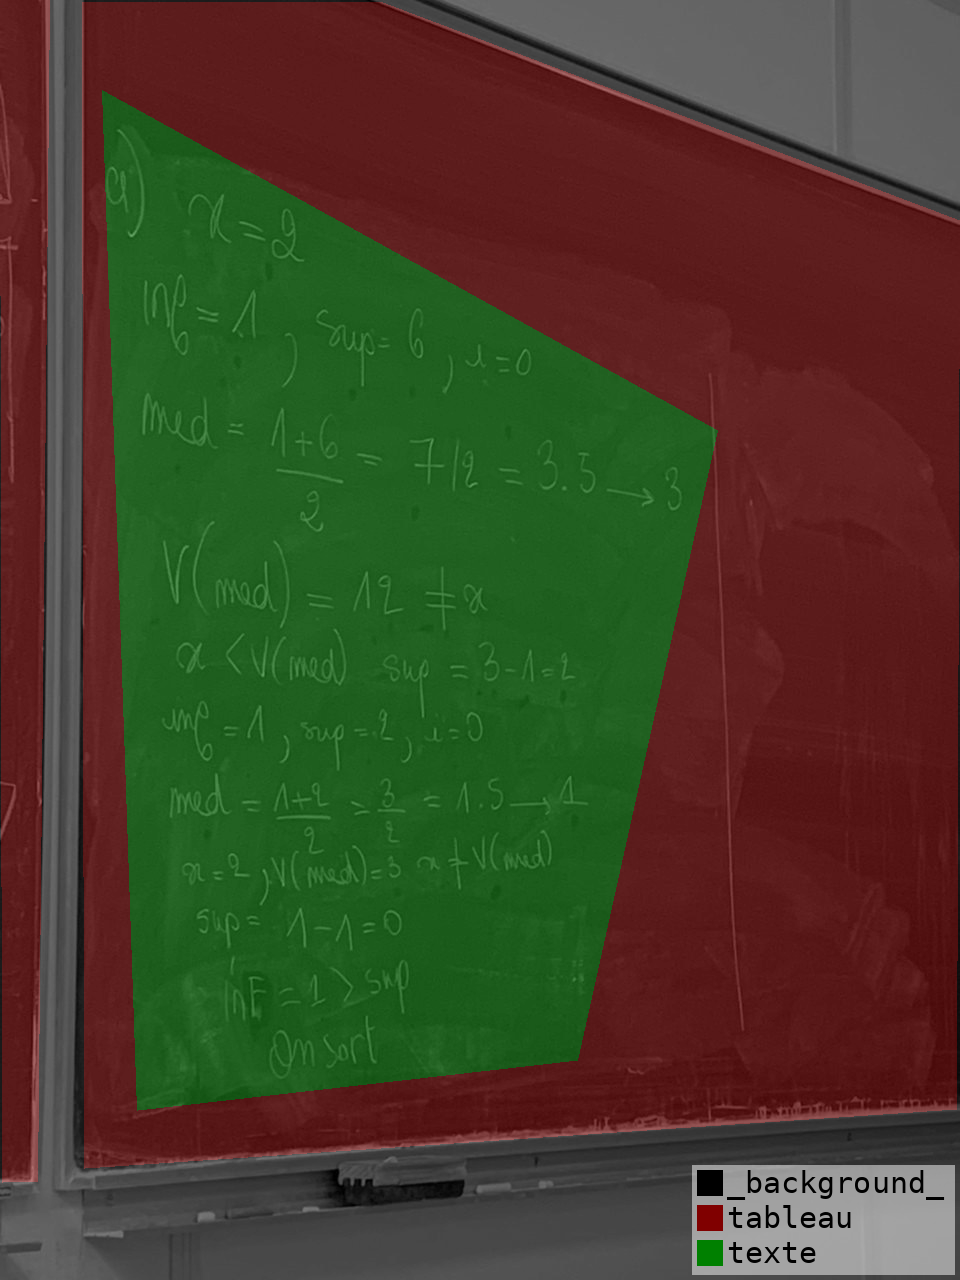 a) x = 2
inf = 1 , sup = 6 , i = 0
med = 1+6/2 = 7/2 = 3.5 → 3
V(med) = 12 ≠ x
x < V(med) sup = 3-1=2
inf = 1 , sup = 2 , i = 0
med = 1+2/2 = 3/2 = 1.5 → 1
x = 2 , V(med) = 3 x ≠ V(med)
sup = 1 - 1 = 0
inf = 1 > sup
On sort
_background_
tableau
texte